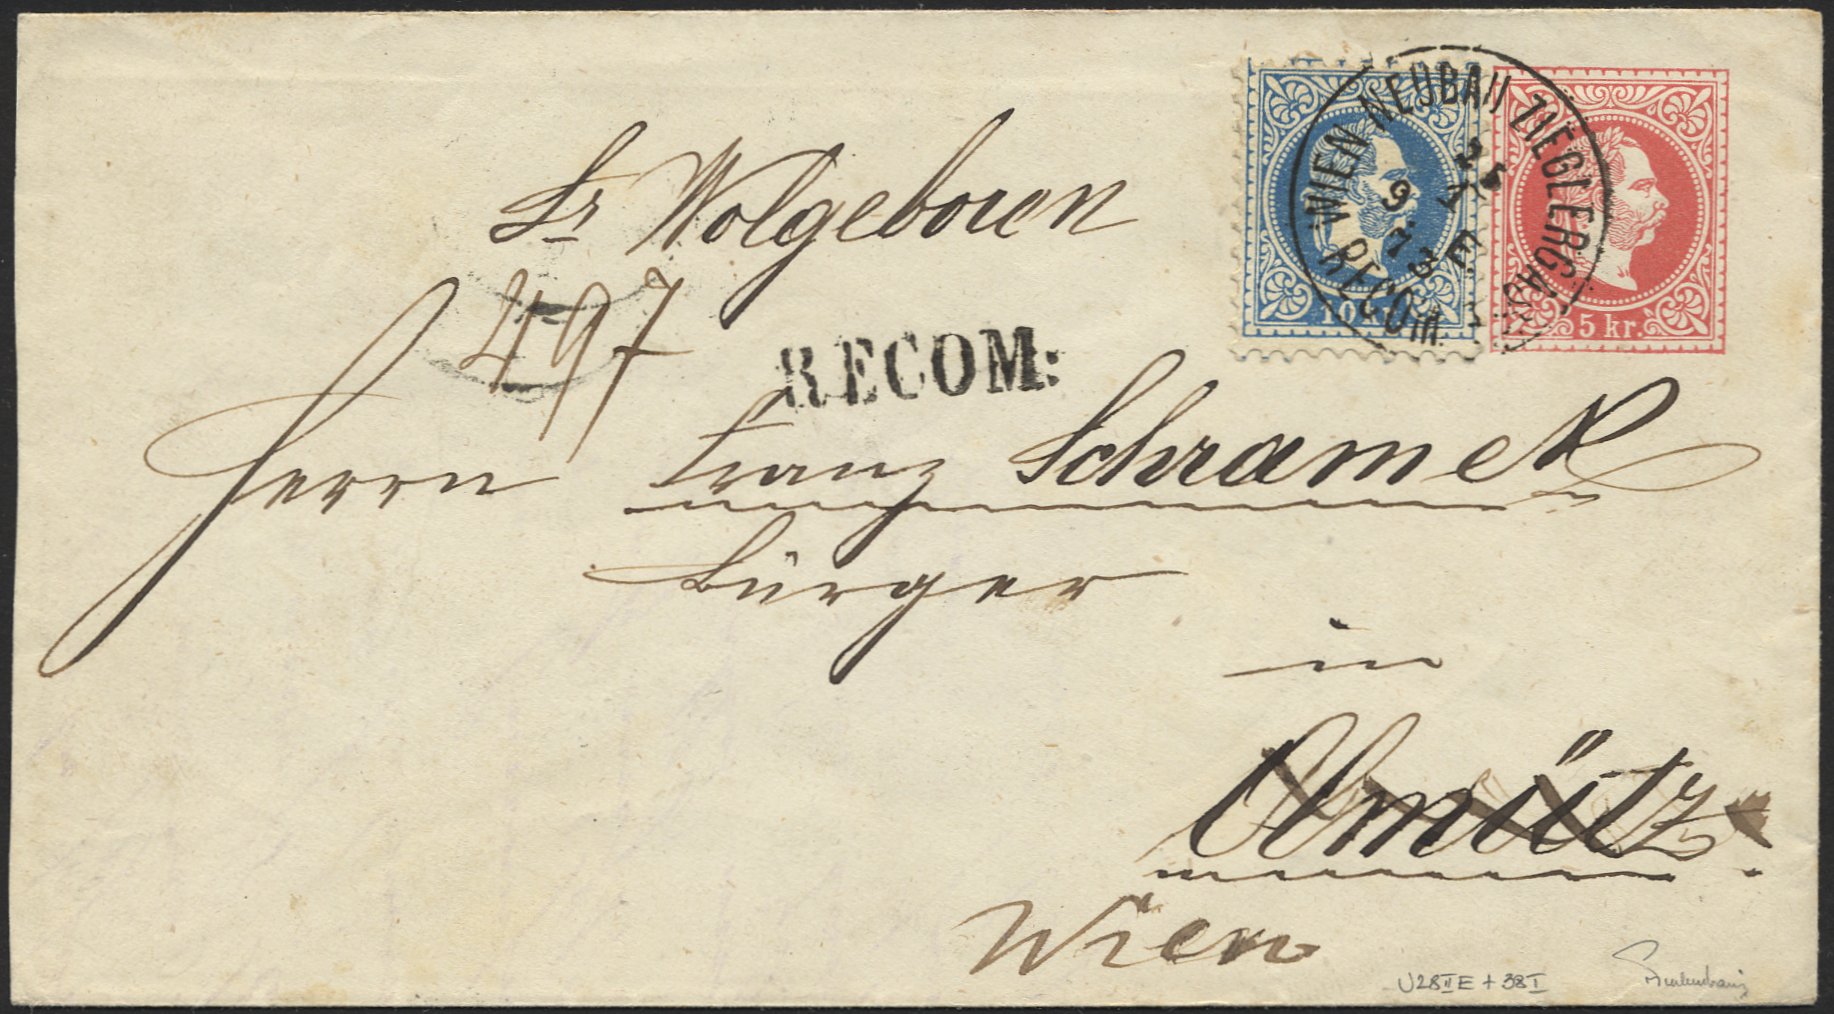 Sr Wolgeboren
497
RECOM:
Herrn Franz Schramek
Bürger
in
Olmütz
Wien
WIEN NEUBAU ZIEGLERG.
RECOM.
25
9 7
73 E
10 kr.
5 kr.
U28IIE + 38I